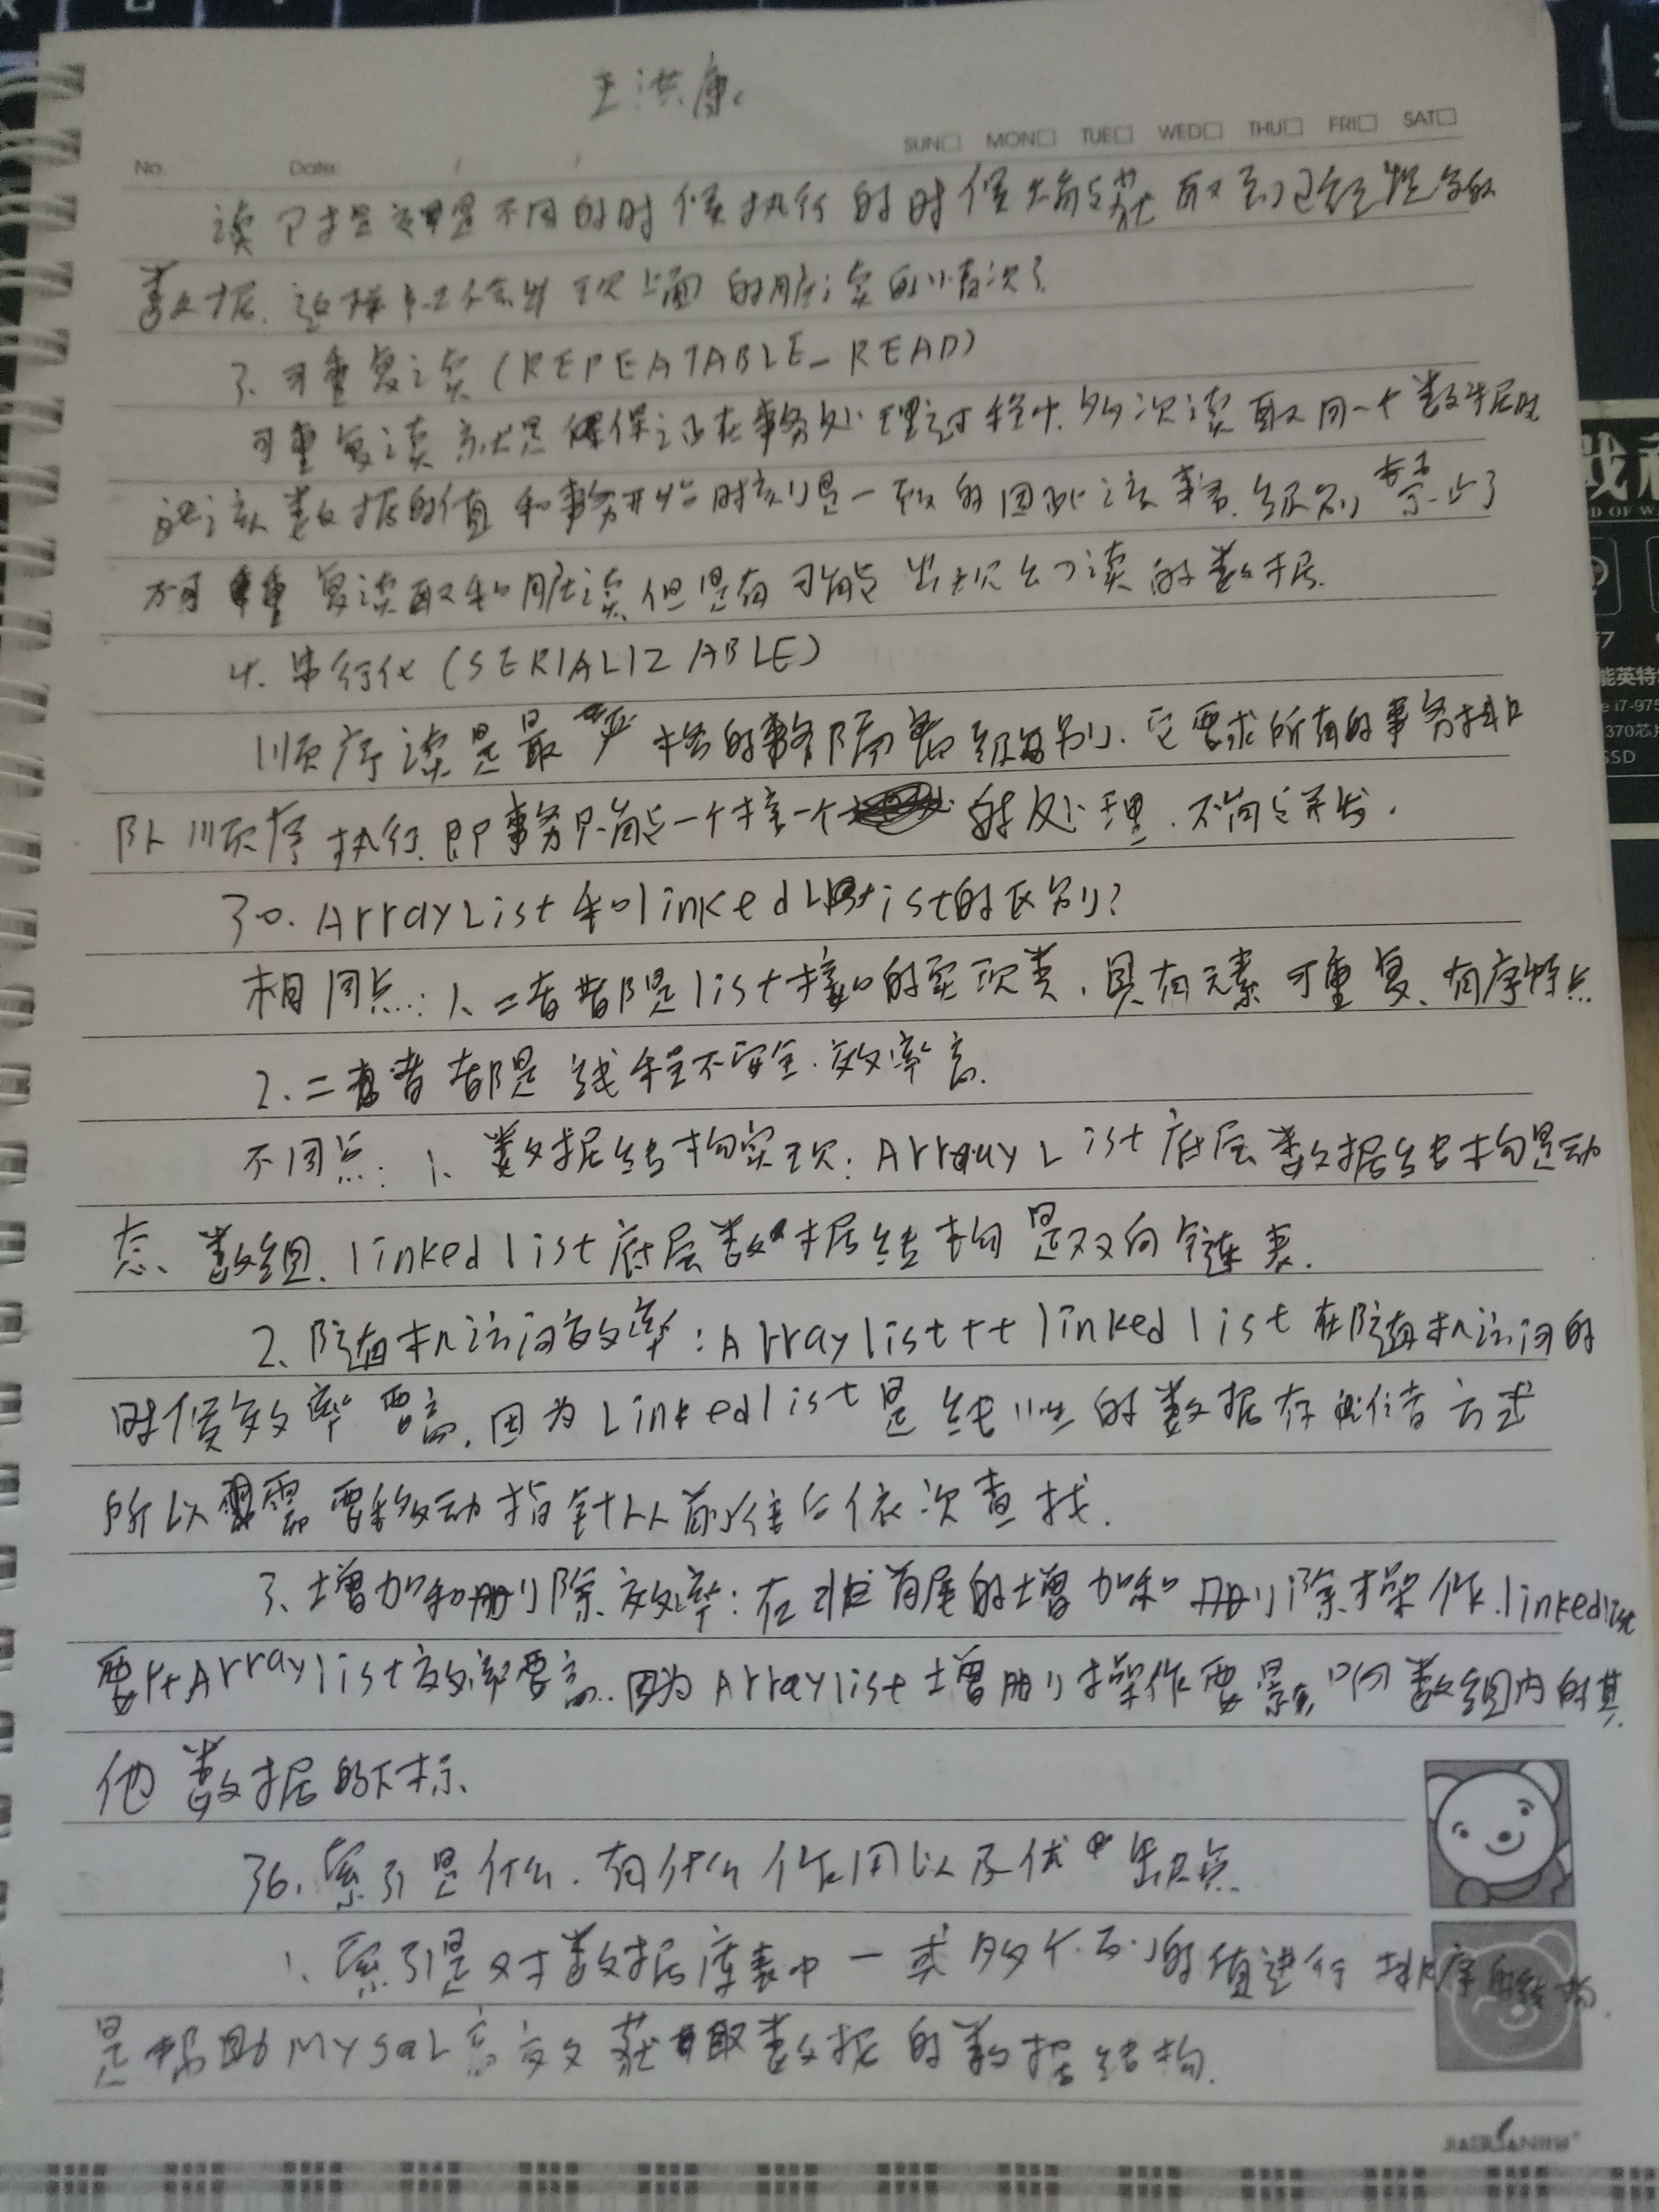 王洪康
No. Date / / SUN□ MON□ TUE□ WED□ THU□ FRI□ SAT□
读已提交里是不同的时候执行的时候只能获取到已经提交的
数据.这样就不会出现上面的脏读的情况了
3.可重复读(REPEATABLE_READ)
可重复读就是保证在事务处理过程中.多次读取同一个数据时
该数据的值和事务开始时刻是一致的因此该事务.级别禁止了
不可重复读取和脏读.但是有可能出现幻读的数据.
4.串行化(SERIALIZABLE)
顺序读是最严格的事务隔离级别.它要求所有的事务排
队顺序执行.即事务只能一个接一个的处理.不能并发.
30.ArrayList和linkedList的区别?
相同点:1、二者都是list接口的实现类.具有元素可重复、有序特点
2.二者都是线程不安全.效率高.
不同点:1、数据结构实现:ArrayList底层数据结构是动
态、数组.linkedlist底层数据结构是双向链表.
2、随机访问效率:Arraylist比linkedlist在随机访问的
时候效率要高.因为Linkedlist是线性的数据存储方式
所以需要移动指针从前往后依次查找.
3、增加和删除效率:在非首尾的增加和删除操作.linkedlist
要比Arraylist效率要高.因为Arraylist增删操作要影响数组内的其
他数据的下标、
36.索引是什么.有什么作用以及优缺点
1、索引是对数据库表中一或多个列的值进行排序的结构.
是帮助MySQL高效获取数据的数据结构.